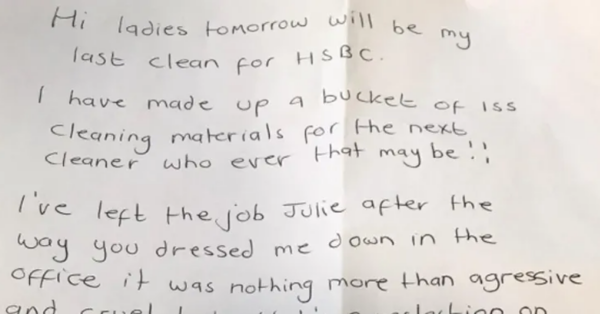 Hi ladies tomorrow will be my
last clean for HSBC.
I have made up a bucket of iss
cleaning materials for the next
cleaner who ever that may be!!
I've left the job Julie after the
way you dressed me down in the
office it was nothing more than agressive
and cruel
on